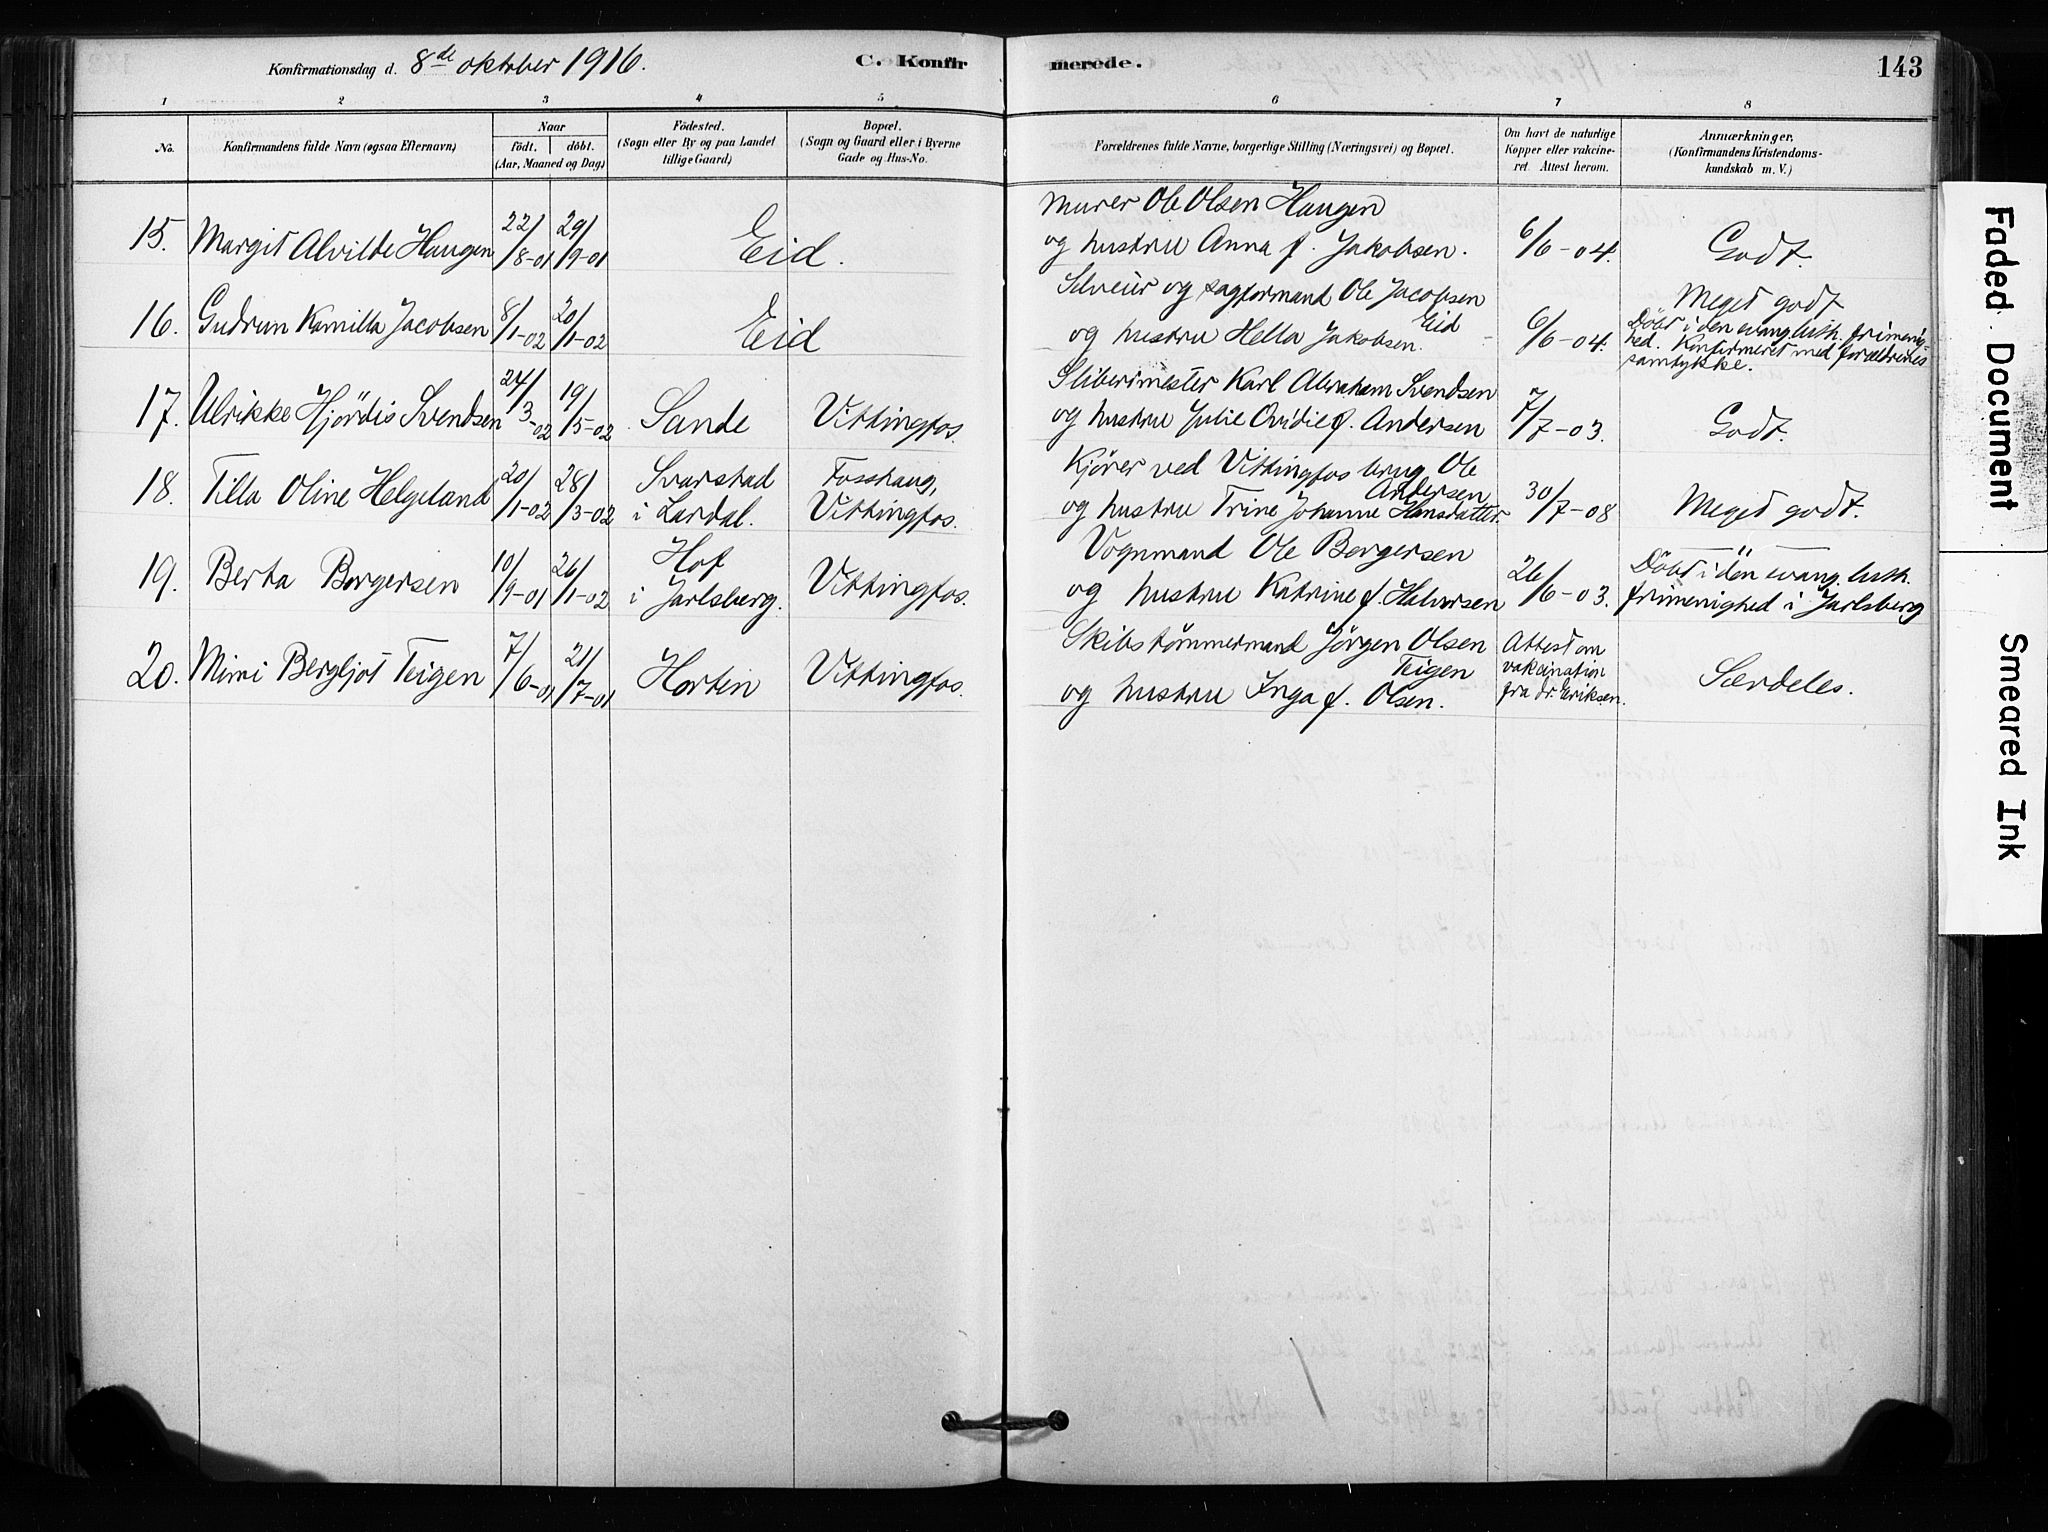 Konfirmationsdag d. 8de oktober 1916.
C. Konfir merede.
143
1 2 3 4 5 6 7 8
No.
Konfirmandens fulde Navn (ogsaa Efternavn)
Naar
födt. döbt.
(Aar, Maaned og Dag)
Födested.
(Sogn eller By og paa Landet
tillige Gaard)
Bopæl.
(Sogn og Gaard eller i Byerne
Gade og Hus-No.
Forældrenes fulde Navne, borgerlige Stilling (Næringsvei) og Bopæl.
Om havt de naturlige
Kopper eller vakcine-
ret. Attest herom.
Anmærkninger.
(Konfirmandens Kristendoms-
kundskab m. V.)
15. Margit Alvilde Haugen 22/8-01 29/9-01 Eid.
Murer Ole Olsen Haugen
og hustru Anna f. Jakobsen. 6/6-04. Godt.
16. Gudrun Kamilla Jacobsen 8/1-02 20/1-02 Eid
Selveier og sagformand Ole Jacobsen
Eid
og hustru Hella Jakobsen. 6/6-04.
Meget godt.
Döbt i den evang. luth. frimenig-
hed. Konfirmeret med forældrenes
samtykke.
17. Ulrikke Hjørdis Svendsen 24/3-02 19/5-02 Sande Vittingfos.
Sliberimester Karl Abraham Svendsen
og hustru Julie Ovidie f. Andersen 7/7-03. Godt.
18. Tilla Oline Helgeland 20/1-02 28/3-02 Svarstad
i Lardal.
Fosshaug,
Vittingfos.
Kjører ved Vittingfos brug Ole
Andersen
og hustru Trine Johanne Hansdatter. 30/7-08 Meget godt.
19. Berta Borgersen 10/9-01 26/1-02 Hof
i Jarlsberg.
Vittingfos.
Vognmand Ole Borgersen
og hustru Katrine f. Halvorsen 26/6-03.
Döbt i den evang. luth.
frimenighed i Jarlsberg
20. Mimi Bergljot Teigen 7/6-01 21/7-01 Horten Vittingfos.
Skibstømmermand Jörgen Olsen
Teigen
og hustru Inga f. Olsen.
Attest om
vakcination
fra dr. Eriksen.
Særdeles.
Faded Document
Smeared Ink